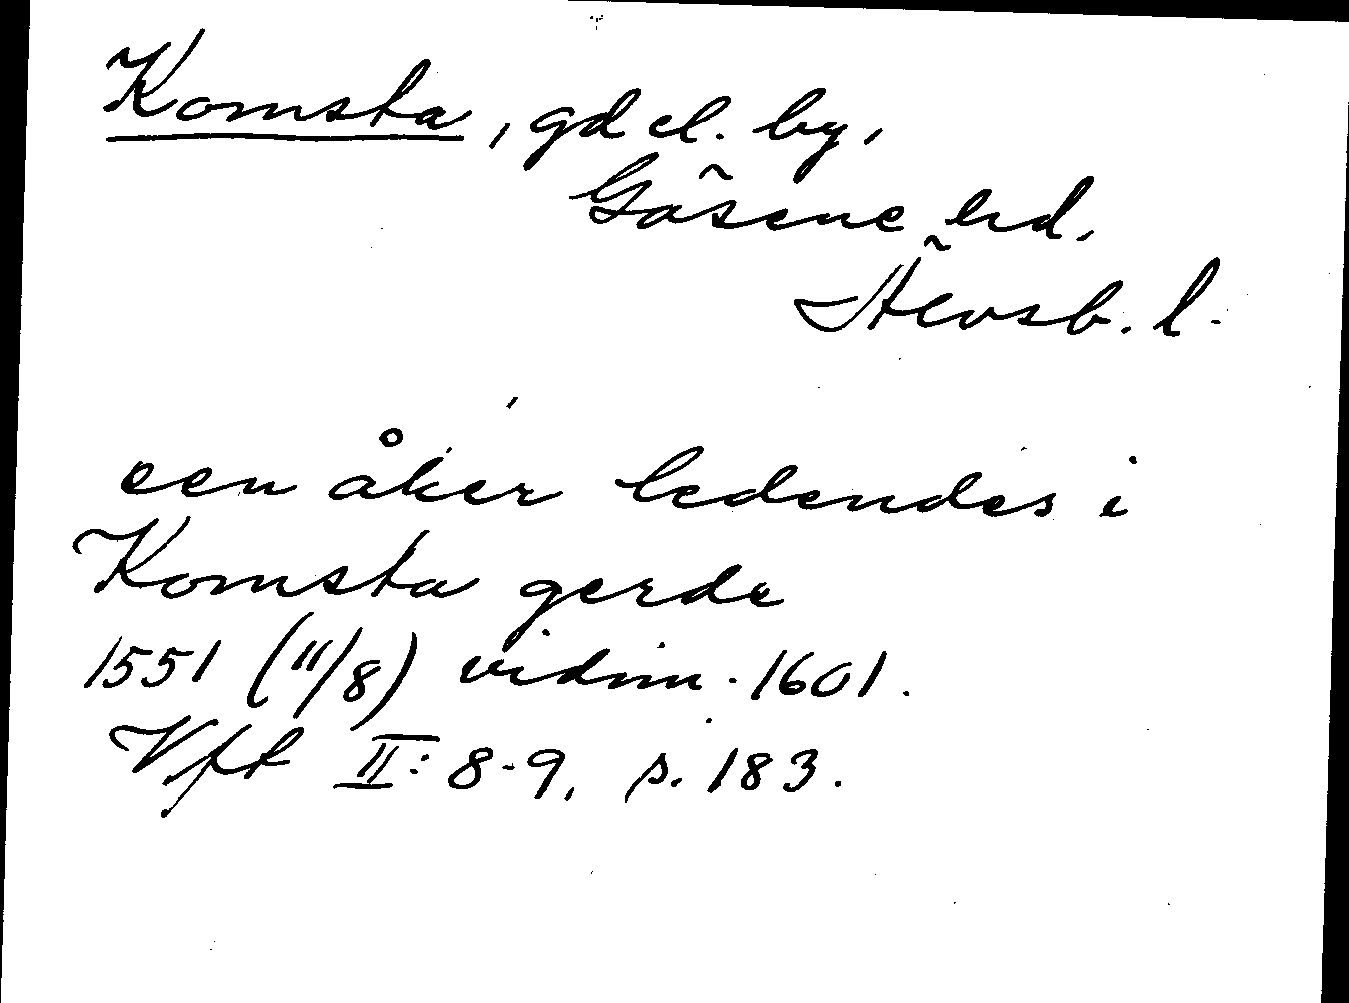 Komsta, gd el. by,
Gäsene hd,
Älvsb. l.
een åker ledendes i
Komsta gerde
1551 (11/8) vidim. 1601.
Vft II: 8-9, s. 183.